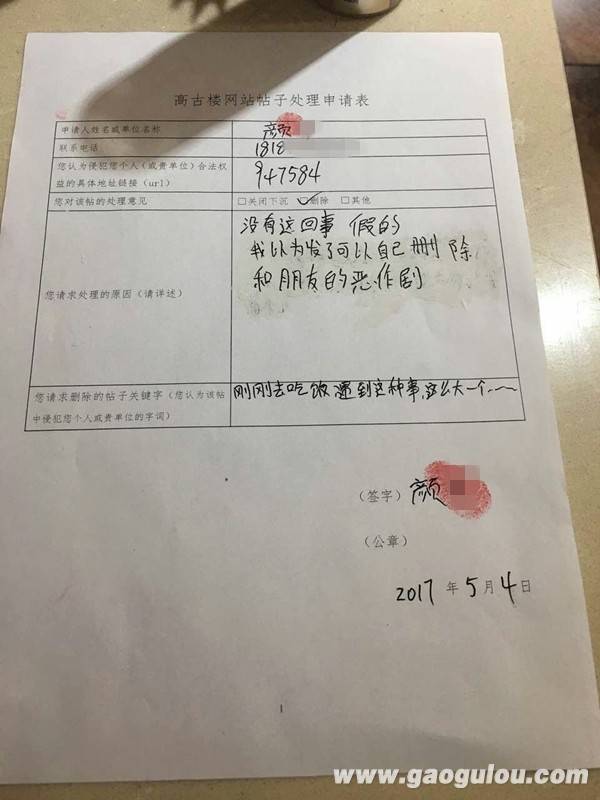 高古楼网站帖子处理申请表
申请人姓名或单位名称
颜
联系电话
1818
您认为侵犯您个人（或贵单位）合法权
益的具体地址链接（url）
947584
您对该帖的处理意见
□关闭下沉 □删除 □其他
您请求处理的原因（请详述）
没有这回事 假的
我以为发了可以自己删除
和朋友的恶作剧
您请求删除的帖子关键字（您认为该帖
中侵犯您个人或贵单位的字词）
刚刚去吃饭遇到这种事,这么大一个……
（签字）颜
（公章）
2017年5月4日
1
www.gaogulou.com